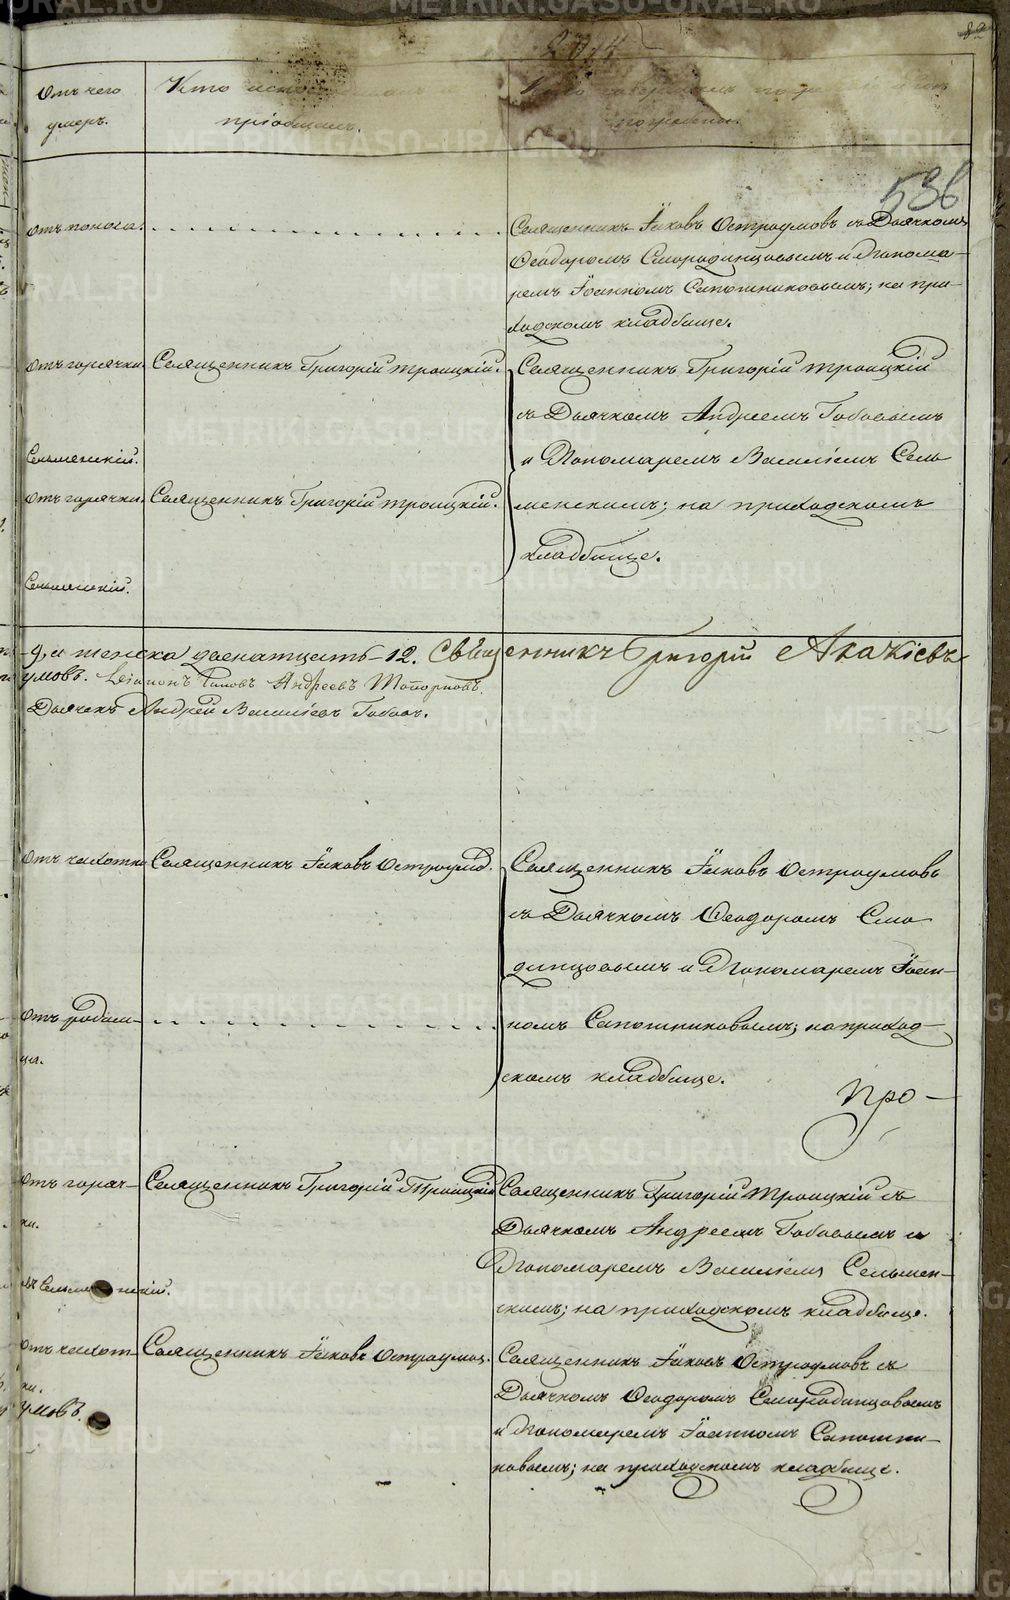 Отъ чего
умеръ.
Кто исповѣдывалъ
пріобщалъ.
Кто совершалъ погребеніе и гдѣ
погребены.
536
Отъ поноса.
Священникъ Іаковъ Остроумовъ съ Дьячкомъ
Ѳеодоромъ Смородинцовымъ и Понома-
ремъ Іоанномъ Сапожниковымъ; на при-
ходскомъ кладбище.
Отъ горячки.
Священникъ Григорій Троицкій.
Священникъ Григорій Троицкій
съ Дьячкомъ Андреемъ Бобовымъ
и Пономаремъ Василіемъ Сель
менскимъ; на приходскомъ
кладбище.
Сельменскій.
Отъ горячки.
Священникъ Григорій Троицкій.
Сельменскій.
9, и женска двенатцать 12. Священникъ Григорий Акакіевъ
умовъ. Андреевъ Топорковъ.
Дьячекъ Андрей Василіевъ Бобовъ.
Отъ чахотки
Священникъ Іаковъ Остроумов.
Священникъ Іаковъ Остроумовъ
съ Дьячкомъ Ѳеодоромъ Смо
динцовымъ и Пономаремъ Іоан-
номъ Сапожниковымъ; на приход-
скомъ кладбище.
Отъ родим-
ца.
Про-
Отъ горяч-
ки.
Священникъ Григорій Троицкій
Священникъ Григорій Троицкій съ
Дьячкомъ Андреемъ Бобовымъ и
Пономаремъ Василіемъ Сельмен-
скимъ; на приходскомъ кладбище.
Сельменскій.
Отъ чахот-
ки.
Священникъ Іаковъ Остроумов.
Священникъ Іаковъ Остроумовъ съ
Дьячкомъ Ѳеодоромъ Смородинцовымъ
и Пономаремъ Іоанномъ Сапожни-
ковымъ; на приходскомъ кладбище.
умовъ.
METRIKI.GASO-URAL.RU